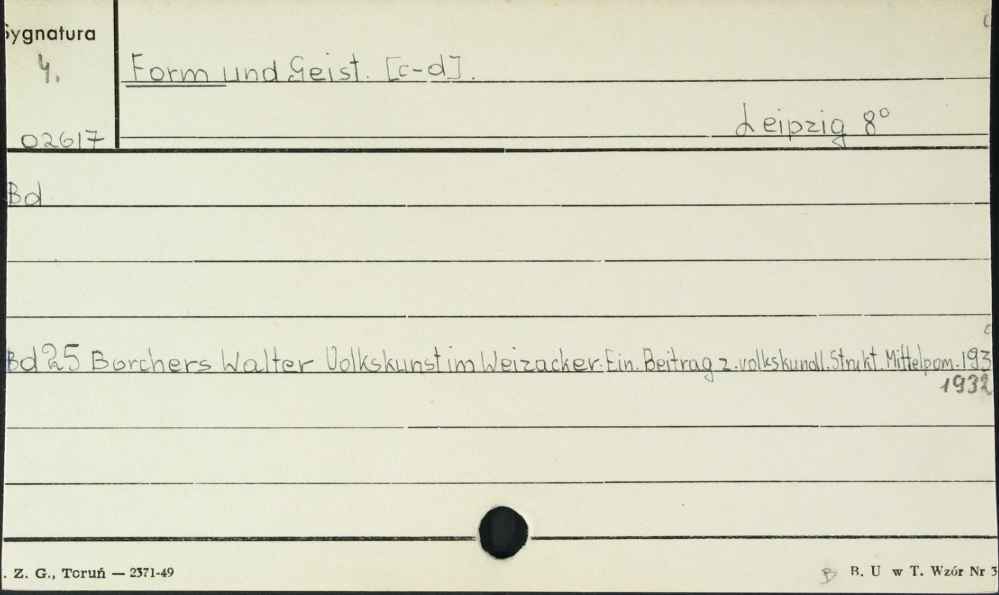 Sygnatura
4.
Form und Geist. [c-d].
Leipzig 8°
02617
Bd
Bd 25 Borchers Walter Volkskunst im Weizacker. Ein. Beitrag z. volkskundl. Strukt. Mittelpom. 193
1932
. Z. G., Toruń — 2371-49
B. U w T. Wzór Nr 3